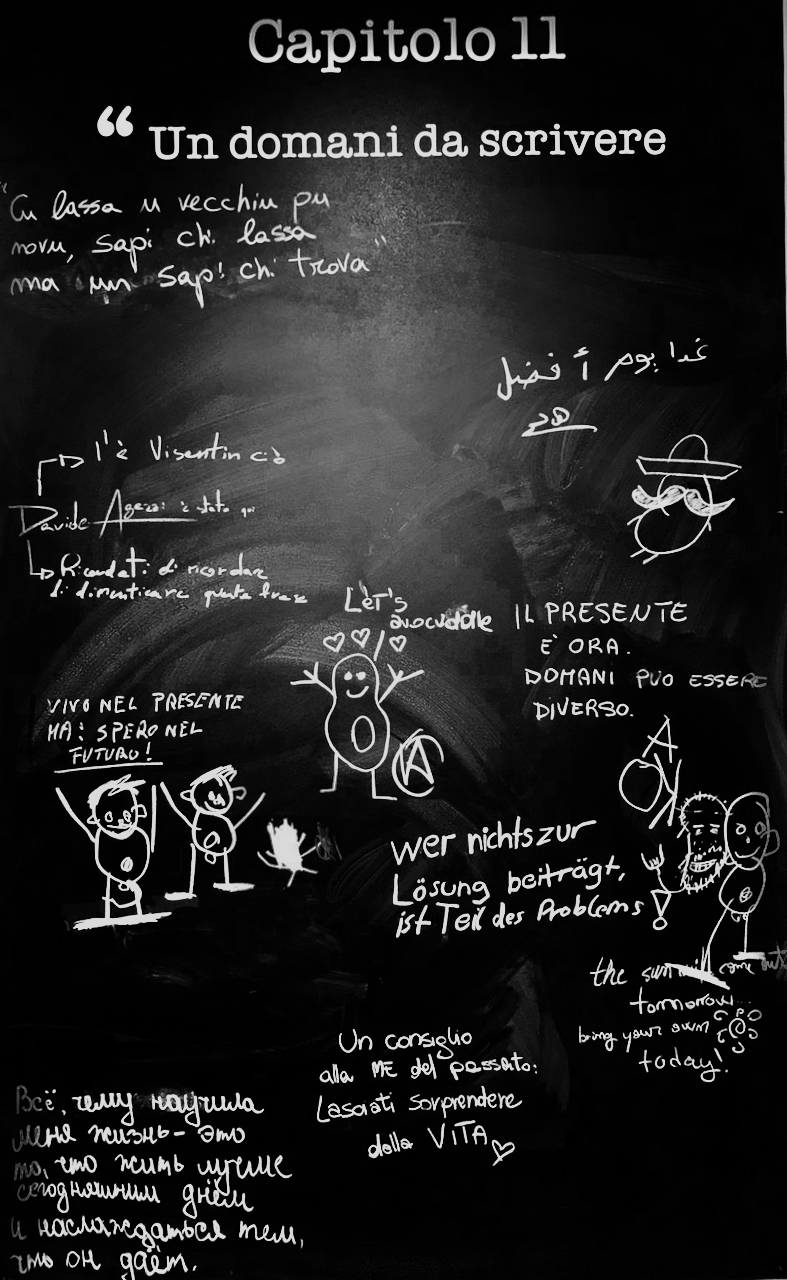 Capitolo 11
“ Un domani da scrivere
"Cu lassa u vecchiu pu
novu, sapi chi lassa
ma un sapi chi trova"
غدا يوم أفضل
l'è Visentin ciò
Davide Agezzi è stato qui
Ricordati di ricordare
di dimenticare questa frase
Let's
avocuddle
IL PRESENTE
E' ORA.
DOMANI PUO ESSERE
DIVERSO.
VIVO NEL PRESENTE
MA: SPERO NEL
FUTURO!
A
A
wer nichts zur
Lösung beiträgt,
ist Teil des Problems!
the sun will come out
tomorrow...
bring your own
today!
Un consiglio
alla ME del passato:
Lasciati sorprendere
dalla VITA
Всё, чему научила
меня жизнь - это
то, что жить лучше
сегодняшним днём
и наслаждаться тем,
что он даёт.